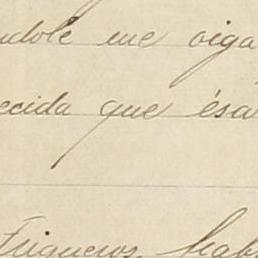 ndole me oiga
ecida que ésa
Trigueros.